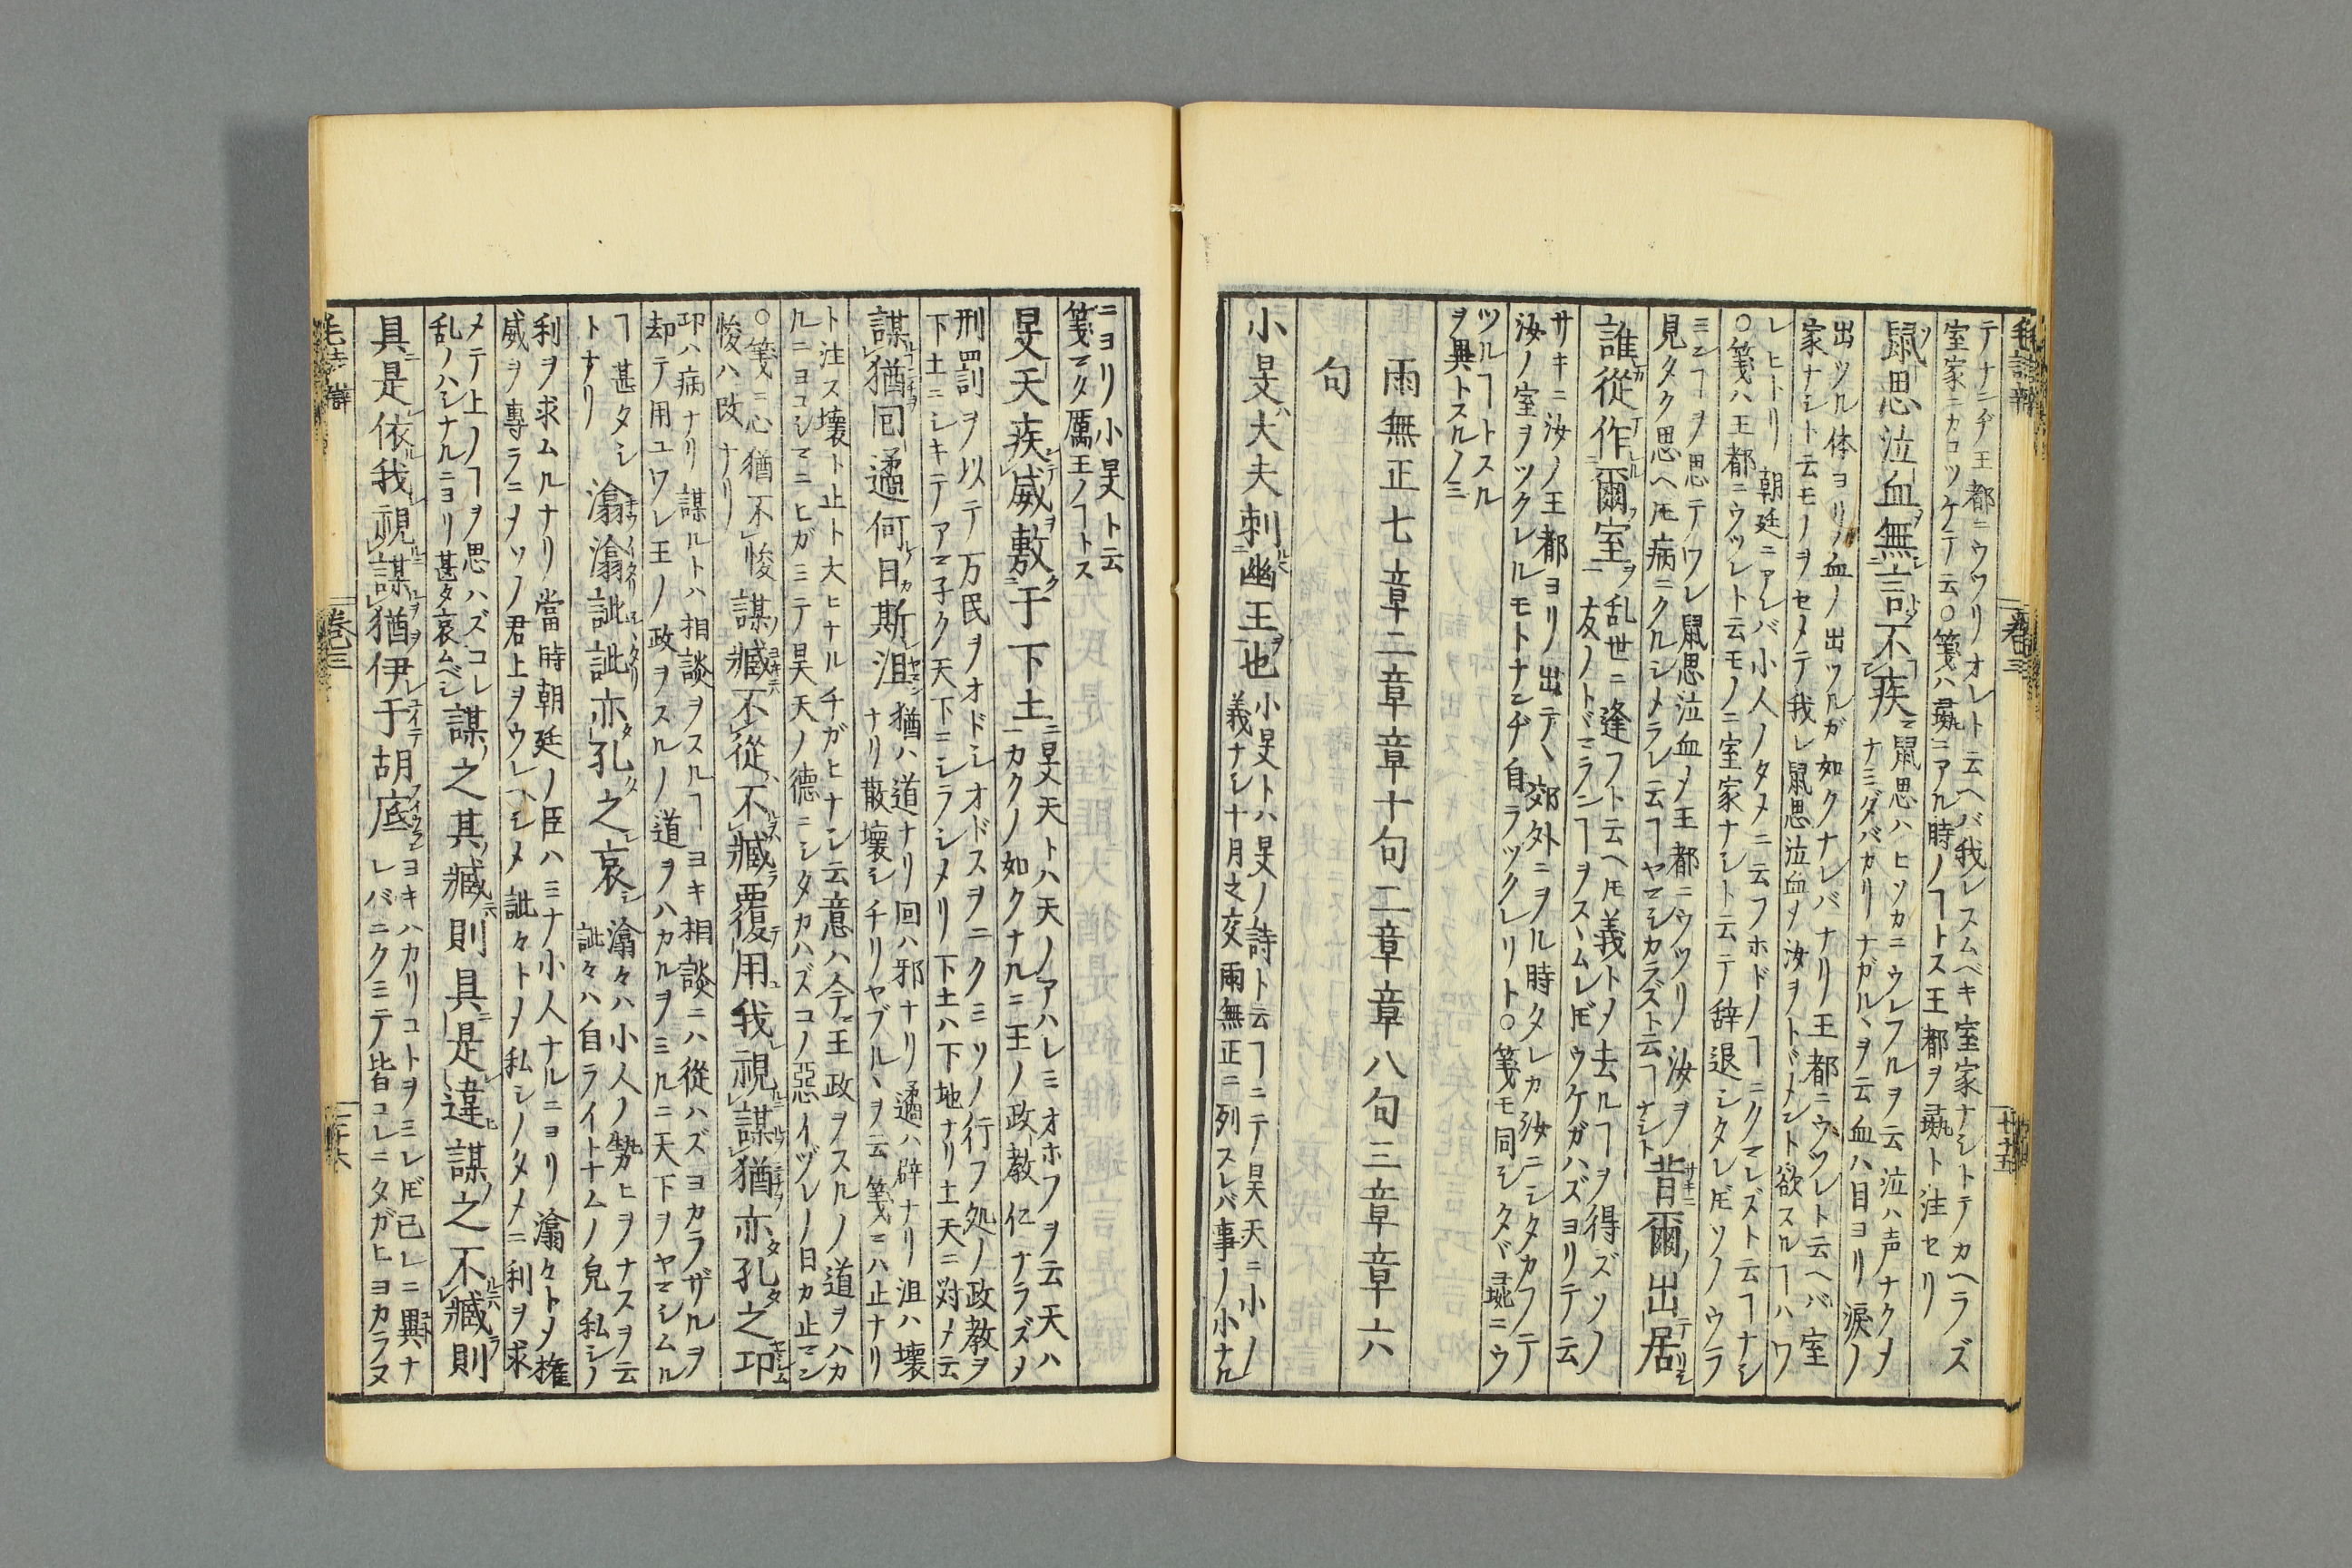 テナンヂ王都ニウツリオレト云ヘバ我レスムベキ室家ナシトテカヘラズ
室家ニカコツケテ云○箋ハ彘ニアル時ノヿトス王都ヲ彘ト注セリ
鼠思泣血無言不疾
鼠思ハヒソカニウレフルヲ云泣ハ声ナクメ
ナミダバカリナガルヽヲ云血ハ目ヨリ淚ノ
出ツル体ヨリノ血ノ出ツルガ如クナレバナリ王都ニウツレト云ヘバ室
家ナシト云モノヲセメテ我レ鼠思泣血メ汝ヲトヾメント欲スルヿハワ
レヒトリ朝廷ニアレバ小人ノタメニ云フホドノヿニクマレズト云ヿナシ
○箋ハ王都ニウツレト云モノニ室家ナシト云テ辞退シタレ𪜈ソノウラ
ミマヿヲ思テワレ鼠思泣血メ王都ニウツリ汝ヲ
見タク思ヘ𪜈病ニクルシメラレ云ヿヤマシカラズト云ヿナシト
昔爾出居
誰從作爾室
乱世ニ逢フト云ヘ𪜈義トメ去ルヿヲ得ズソノ
友ノトヾマランヿヲスヽムレ𪜈ウケガハズヨリテ云
サキニ汝ノ王都ヨリ出テヽ郊外ニヲル時タレカ汝ニシタカフテ
汝ノ室ヲツクレルモトナンヂ自ラツクレリト○箋モ同シタヾ彘ニウ
ツルヿトスル
ヲ異トスルノミ
雨無正七章二章章十句二章章八句三章章六
句
小旻大夫刺幽王也
小旻トハ旻ノ詩ト云ヿニテ旻天ニ小ノ
義ナシ十月之交雨無正ニ列スレバ事ノ小ナル
ニヨリ小旻ト云
箋マタ厲王ノヿトス
旻天疾威敷于下土
旻天トハ天ノアハレミオホフヲ云天ハ
カクノ如クナルニ王ノ政教仁ナラズメ
刑罰ヲ以テ万民ヲオドシオドスヲニクミソノ行フ処ノ政教ヲ
下土ニシキテアマ子ク天下ニシラシメリ下土ハ下地ナリ土天ニ対メ云
謀猶回遹何日斯沮
猶ハ道ナリ回ハ邪ナリ遹ハ辟ナリ沮ハ壊
ナリ散壊シチリヤブルヽヲ云箋ニハ止ナリ
ト注ス壊ト止ト大ヒナルチガヒナシ云意ハ今王政ヲスルノ道ヲハカ
ルニヨコシマニヒガミテ昊天ノ德ニシタカハズコノ惡イヅレノ日カ止マン
○箋ニ心猶不悛
悛ハ改ナリ
謀臧不從不臧覆用我視謀猶亦孔之卭
卭ハ病ナリ謀ルトハ相談ヲスルヿヨキ相談ニハ從ハズヨカラザルヲ
却テ用ユワレ王ノ政ヲスルノ道ヲハカルヲミルニ天下ヲヤマシムル
ヿ甚タシ
トナリ
潝潝訿訿亦孔之哀
潝々ハ小人ノ勢ヒヲナスヲ云
訿々ハ自ライトナムノ皃私シノ
利ヲ求ムルナリ當時朝廷ノ臣ハミナ小人ナルニヨリ潝々トメ權
威ヲ專ラニメソノ君上ヲウレヘシメ訿々トメ私シノタメニ利ヲ求
メテ上ノヿヲ思ハズコレ
乱ノハシナルニヨリ甚タ哀ムベシ
謀之其臧則具是違謀之不臧則
具是依我視謀猶伊于胡底
ヨキハカリコトヲミレ𪜈已レニ異ナ
レバニクミテ皆コレニタガヒヨカラヌ